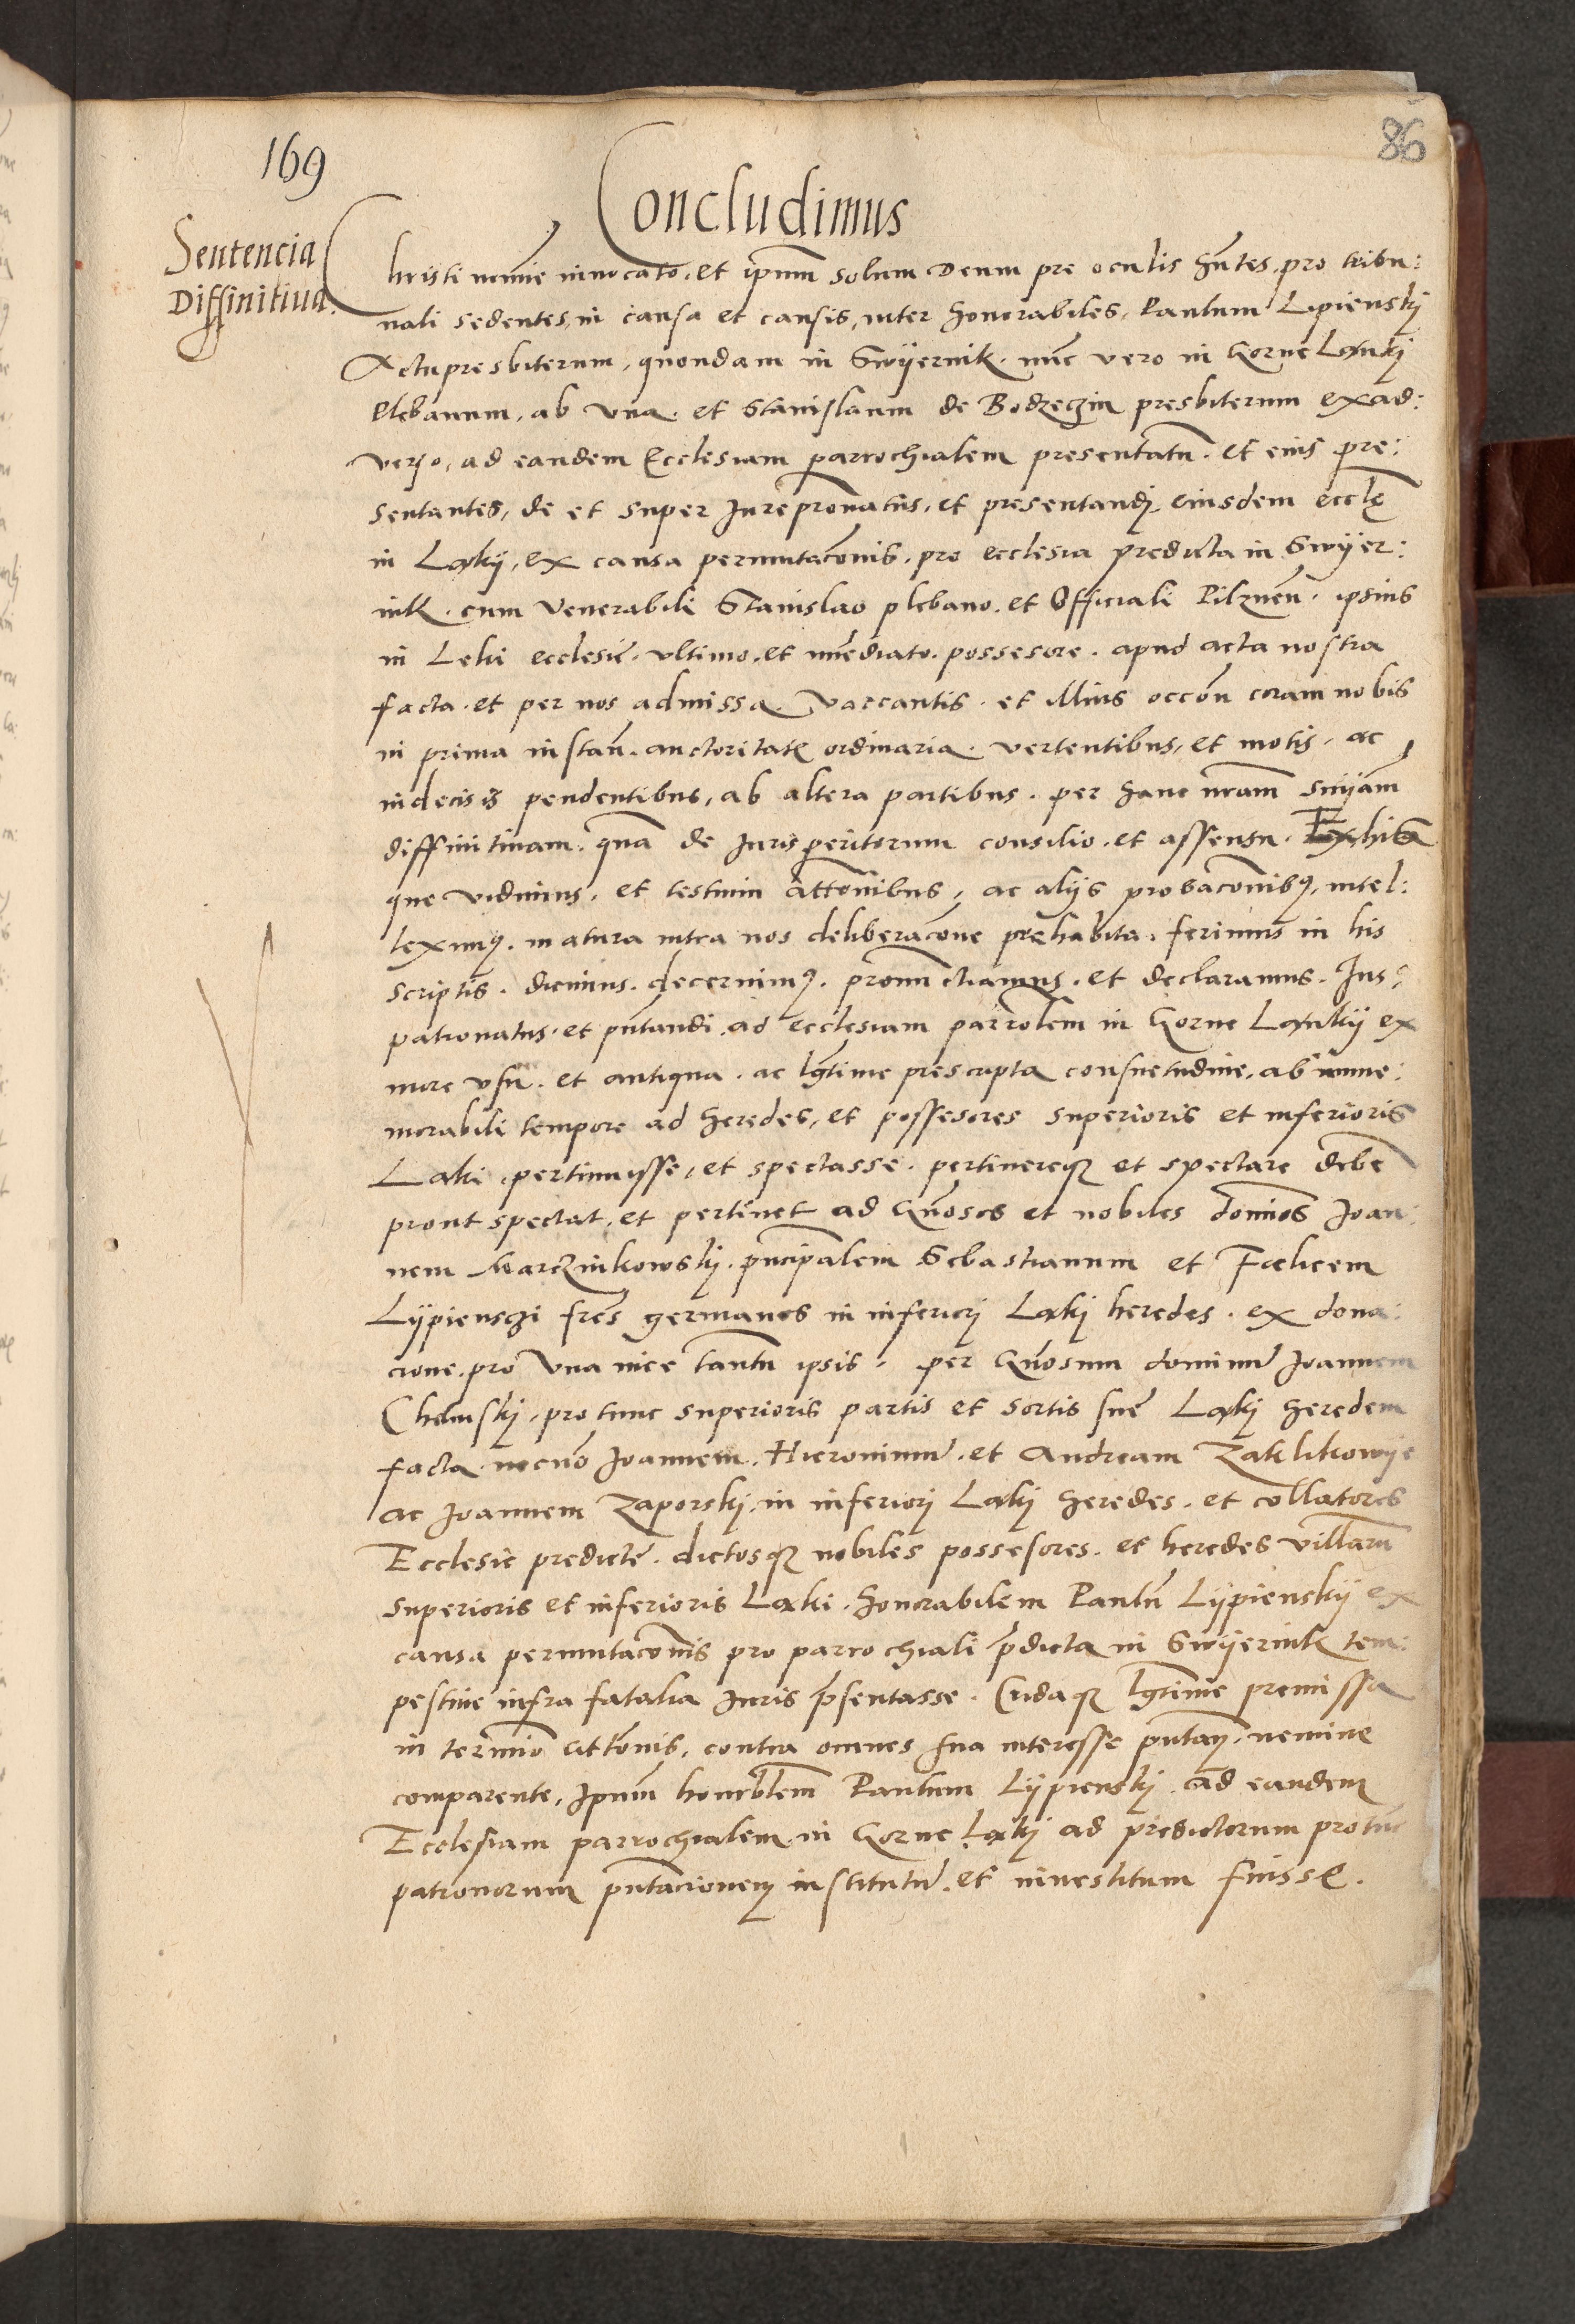 86
169
Concludimus
Sentencia
Diffinitiua
Christi nomine inuocato. et ipsum solum Deum pre oculis hntes. pro tribu:
nali sedentes, in causa et causis, inter honorabiles, Paulum Lipienskÿ
Actu presbiterum, quondam in Swÿernik. nunc vero in Gorne Lanky
Plebanum, ab vna. et Stanislaum de Bodzeczin presbiterum ex ad:
verso, ad eandem Ecclesiam parrochialem presentatu. et eius pre:
sentantes, de et super Jurepronatus, et presentandj eiusdem eccle
in Lakÿ, ex causa permutaconis, pro ecclesia predicta in Swÿer:
nik. cum Venerabili Stanislao plebano. et Officiali Pilznen. ipsius
in Leki ecclesie. vltimo. et immediato. possesore. apud acta nostra
facta. et per nos admissa. vaccantis. et illius occon coram nobis
in prima instan. auctoritate ordinaria. vertentibus, et motis, ac
indecisis pendentibus, ab altera partibus. per hanc nram sniam
diffinitiuam. qua de Jurisperitorum consilio. et assensu. Exhita
que vidimus, et testium attonibus, ac alijs probaconibus, intel:
leximus. matura intra nos deliberacone prehabita. ferimus in his
scriptis. dicimus. decernimus. pronunctiamus. et declaramus. Jus
patronatus. et pntandi ad ecclesiam parrolem in Gorne Lankÿ ex
more vsu. et antiqua. ac lgtime prescripta consuetudine, ab imme:
morabili tempore ad heredes, et possesores superioris et inferioris
Laki, pertinuisse, et spectasse. pertinereque et spectare debe
prout spectat, et pertinet ad Gnosos et nobiles dominos Joan:
nem Marczinkowskj. pncipalem Sebastianum et Foelicem
Lÿpienszi fres germanos in inferiorj Lakj heredes. ex dona:
cione. pro vna vice tantu ipsis. per Gnosum dominu Joannem
Chelmskj, pro tunc superioris partis et sortis sue Lakj heredem
facta. necno Joannem. Hieronimu. et Andream Zaklikowÿe
ac Joannem Zaporskj in inferiorj Lakj heredes. et collatores
Ecclesie predicte. dictosque nobiles possesores. et heredes villaru
superioris et inferioris Laki. honorabilem Paulu Lÿpienskÿ ex
causa permutaconis pro parrochiali pdicta in Swÿernik tem:
pestiue infra fatalia Juris psentasse. Cridaque lgtime premissa
in termino cittonis, contra omnes sua interesse putan, nemine
comparente, Ipsum honorblem Paulum Lÿpienskj. ad eandem
Ecclesiam parrochialem in Gorne Lakj ad predictorum protunc
patronorum pntacionem institutu. et inuestitum fuisse.